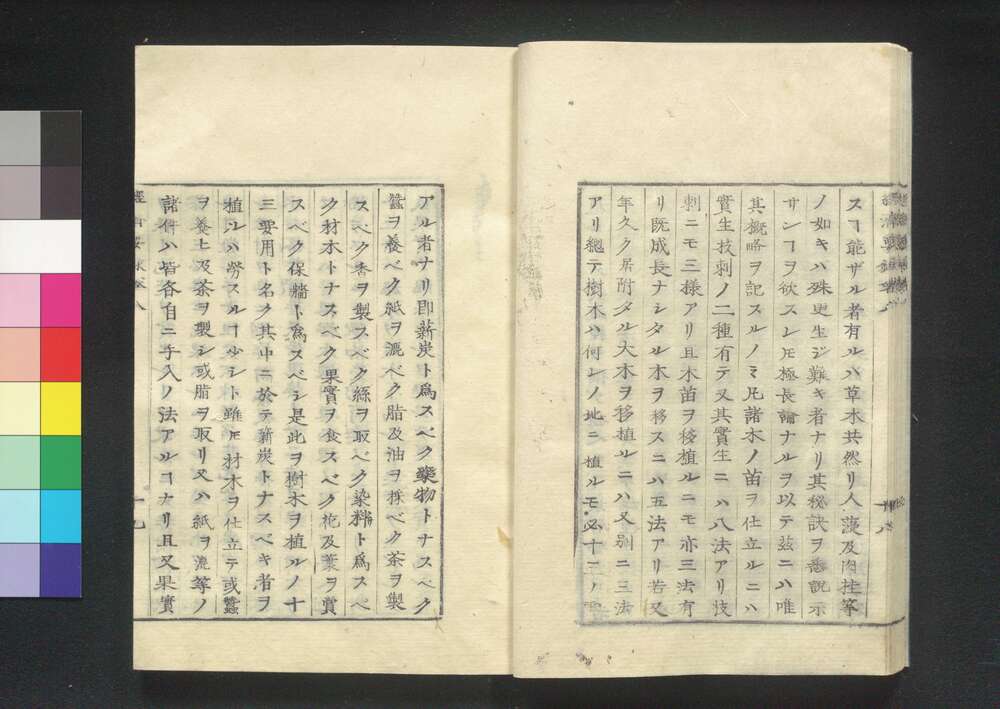 スヿ能ザル者有ルハ草木共然リ人蓡及肉桂等
ノ如キハ殊更生ジ難キ者ナリ其秘訣ヲ悉説示
サンヿヲ欲スレ𪜈極長論ナルヲ以テ茲ニハ唯
其概略ヲ記スルノミ凡諸木ノ苗ヲ仕立ルニハ
實生枝刺ノ二種有テ又其實生ニハ八法アリ枝
刺ニモ三様アリ且木苗ヲ移植ルニモ亦三法有
リ既成長ナシタル木ヲ移スニハ五法アリ若又
年久ク居附タル大木ヲ移植ルニハ又別ニ三法
アリ總テ樹木ハ何レノ地ニ植ルモ必十三ノ
アル者ナリ即薪炭ト爲スベク藥物トナスベク
蠶ヲ養ベク紙ヲ漉ベク脂及油ヲ採ベク茶ヲ製
スベク香ヲ製スベク絲ヲ取ベク染料ト爲スベ
ク材木トナスベク果實ヲ食スベク花及葉ヲ賞
スベク保牆ト爲スベシ是此ヲ樹木ヲ植ルノ十
三要用ト名ク其中ニ於テ薪炭トナスベキ者ヲ
植ルハ勞スルヿ少シト雖𪜈材木ヲ仕立テ或蠶
ヲ養ヒ及茶ヲ製シ或脂ヲ取リ又ハ紙ヲ漉等ノ
諸件ハ皆各自ニ手入ノ法アルヿナリ且又果實
十九